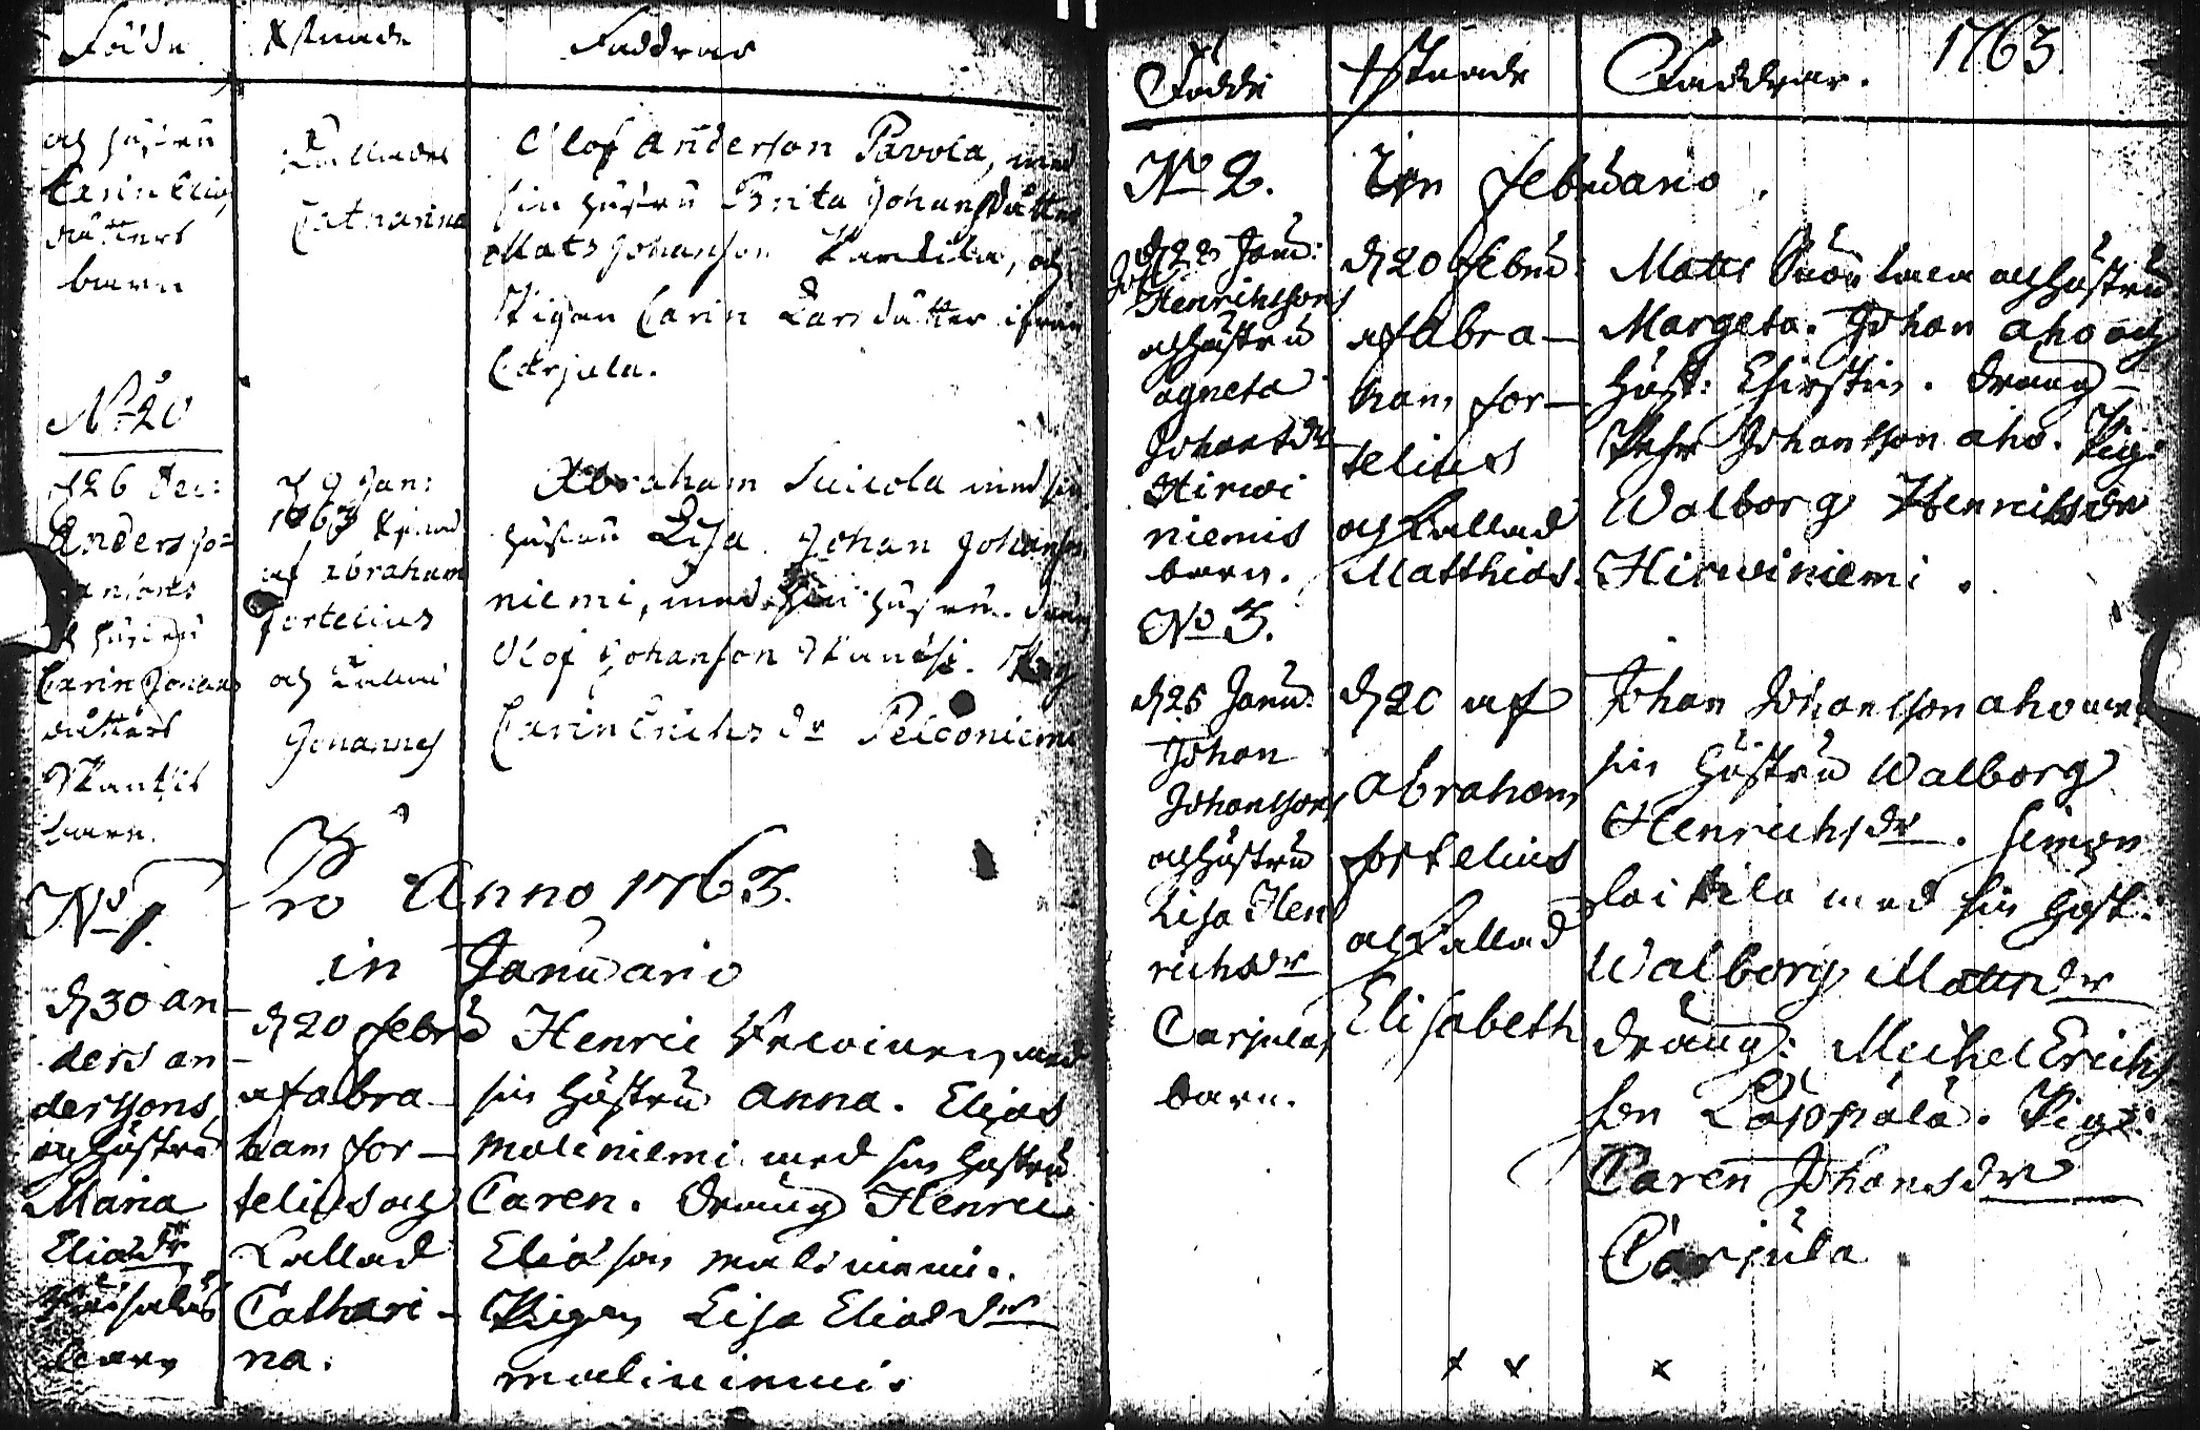 Födde Xstnade Faddrar
och hustru
Carin Elias
dåtters
barn
Kallades
Catharina
Olof Anderson Pavola, med
sin hustru Brita Johansdåtter
Mats Johanson och
Pigan Carin Larsdåtter ifrån
Carjula.
No 20
d 26 Dec:
Anders Jo=
hustru
Carin Johans
dåtters
barn.
d 9 Jan:
1763 Xstnad
af Abraham
Fortelius
och Kallad
Johannes
Abraham med sin
hustru Lisa. Johan Johanson
niemi, med sin hustru. Dreng
Olof Johanson Pig
Carin Erichs dr Pelconiemi
Pro Anno 1763.
in Januario
No 1.
d 30 An
ders An
derssons
och hustru
Maria
Elias dr
barn
d 20 Febru
af Abra
ham For
telius och
Kallad
Cathari
na.
Henric med
sin hustru Anna. Elias
Maliniemi med sin hustru
Caren. Dreng Henric
Eliasson Maliniemi.
Pigan Lisa Elias dr
Maliniemi.
1763.
Födde Xstnade Faddrar.
No 2. In Februario.
d 28 Janu:
Henrichssons
och hustru
Agneta
Johans dr
Hirwi
niemis
barn.
d 20 Febru:
af Abra
ham For
telius
och Kallad
Matthias.
Matts och hustru
Margeta. Johan Aho och
hust: Chirstin. Dreng
Pehr Johansson Aho. Pig:
Walborg Henrichs dr
Hirwiniemi.
No 3.
d 25 Janu:
Johan
Johanssons
och hustru
Lisa Hen
richs dr
Carjulas
barn.
d 20 af
Abraham
Fortelius
och Kallad
Elisabeth
Johan Johansson Aho med
sin hustru Walborg
Henrichs dr. Simon
Laitila med sin hust:
Walborg Matts dr
Dreng: Michel Erichs
son Lappala. Pig:
Caren Johans dr
Carjula
x x x